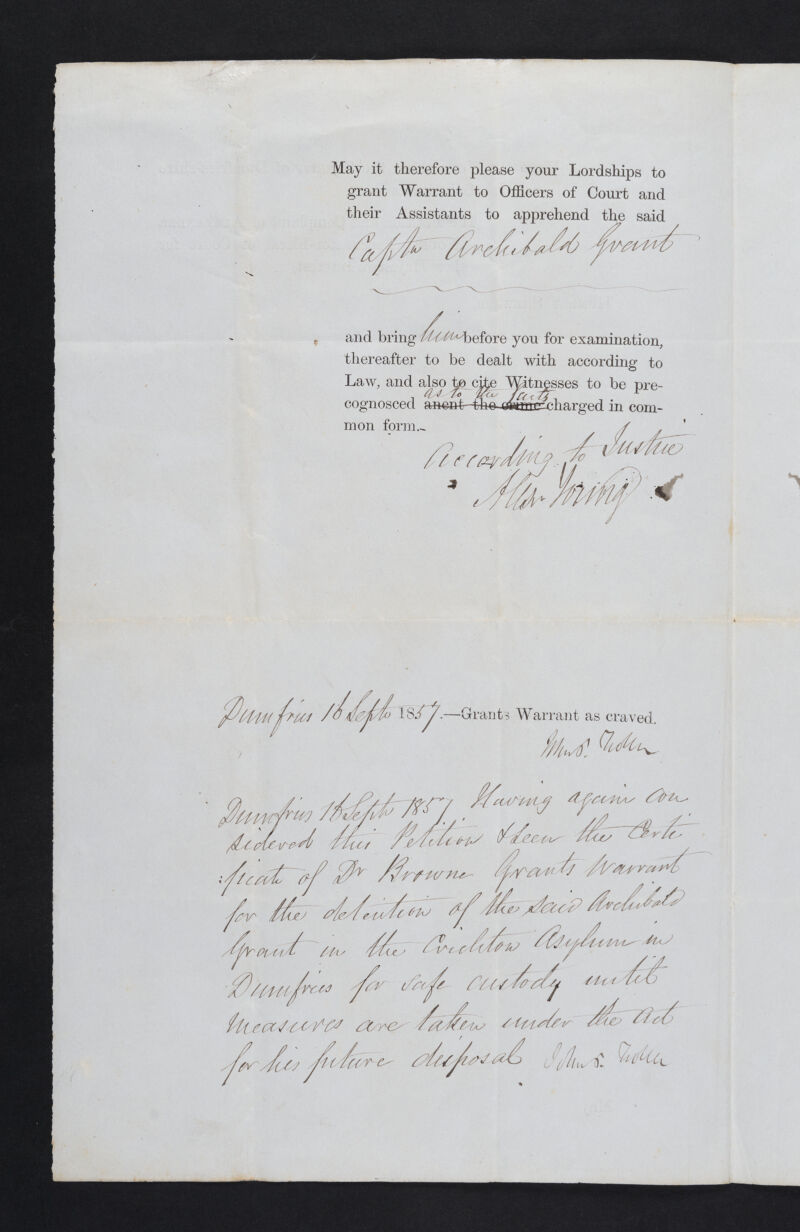 May it therefore please your Lordships to
grant Warrant to Officers of Court and
their Assistants to apprehend the said
Captn Archibald Grant
and bring him before you for examination,
thereafter to be dealt with according to
Law, and also to cite Witnesses to be pre-
as to the facts
cognosced anent the crime charged in com-
mon form.—
According to Justice
Young
Dumfries 16 Septr 1857.—Grants Warrant as craved.
Dumfries 16 Septr 1857 Having again con
sidered this Petition & seen the Certi
:ficate of Dr Browne Grants Warrant
for the detention of the said Archibald
Grant in the Crichton Asylum in
Dumfries for safe custody until
measures are taken under the Act
for his future disposal John